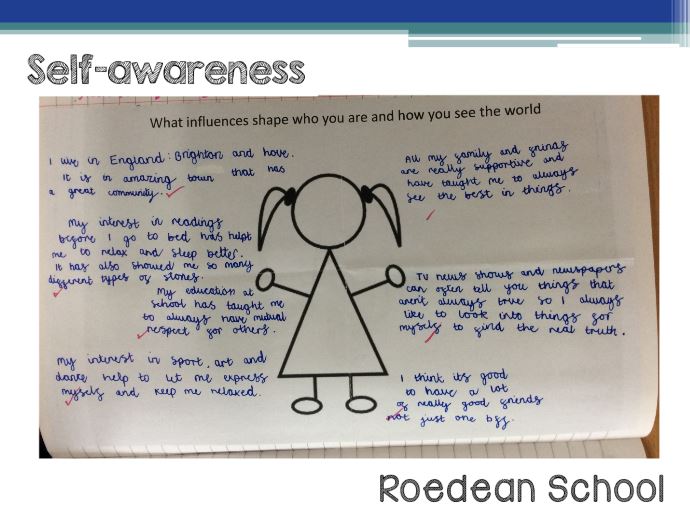 Self-awareness
What influences shape who you are and how you see the world
I live in England: Brighton and hove.
It is in amazing town that has
a great community.
My interest in readings
before I go to bed has helpt
me to relax and sleep better.
It has also showed me so many
different types of stories.
My education at
school has taught me
to always have mutual
respect for others.
My interest in sport, art and
dance help to let me express
myself and keep me relaxed.
All my family and frinds
are really supportive and
have taught me to always
see the best in things.
TV news shows and newspapers
can often tell you things that
aren't always true so I always
like to look into things for
myself to find the real truth.
I think its good
to have a lot
of really good friends
not just one bff.
Roedean School